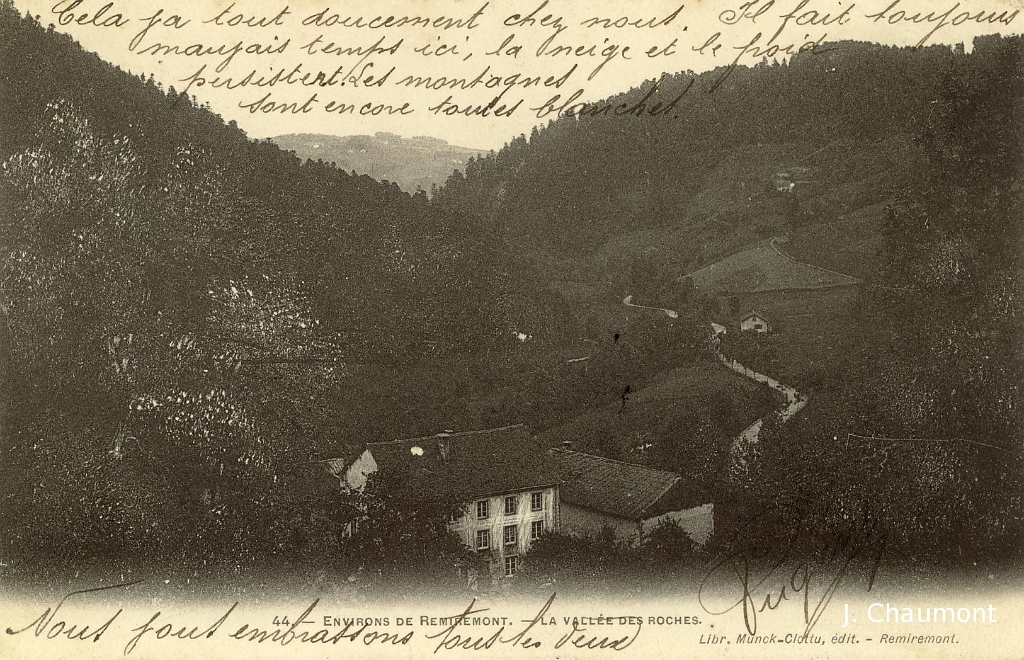 Cela ça tout doucement chez nous. Il fait toujours
mauvais temps ici, la neige et le froid
persistent. Les montagnes
sont encore toutes blanches.
44. - ENVIRONS DE REMIREMONT. - LA VALLÉE DES ROCHES.
Nous embrassons tous les deux
Libr. Munck-Clottu, édit. - Remiremont.
J. Chaumont